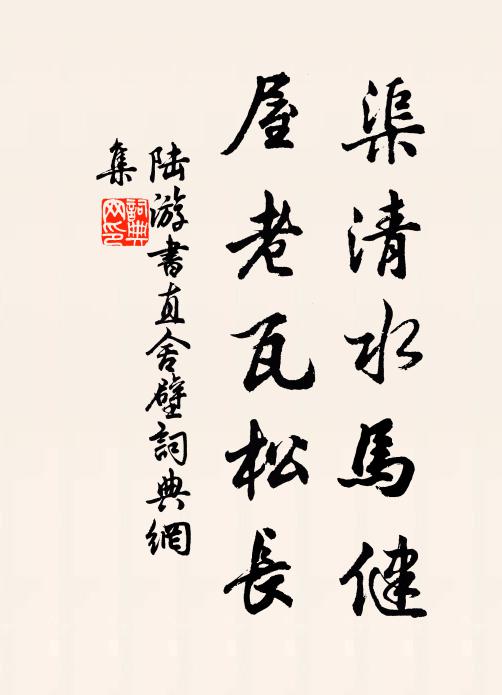 渠清水馬健
屋老瓦松長
陸游書直舍壁詞典網
集
詞典網印